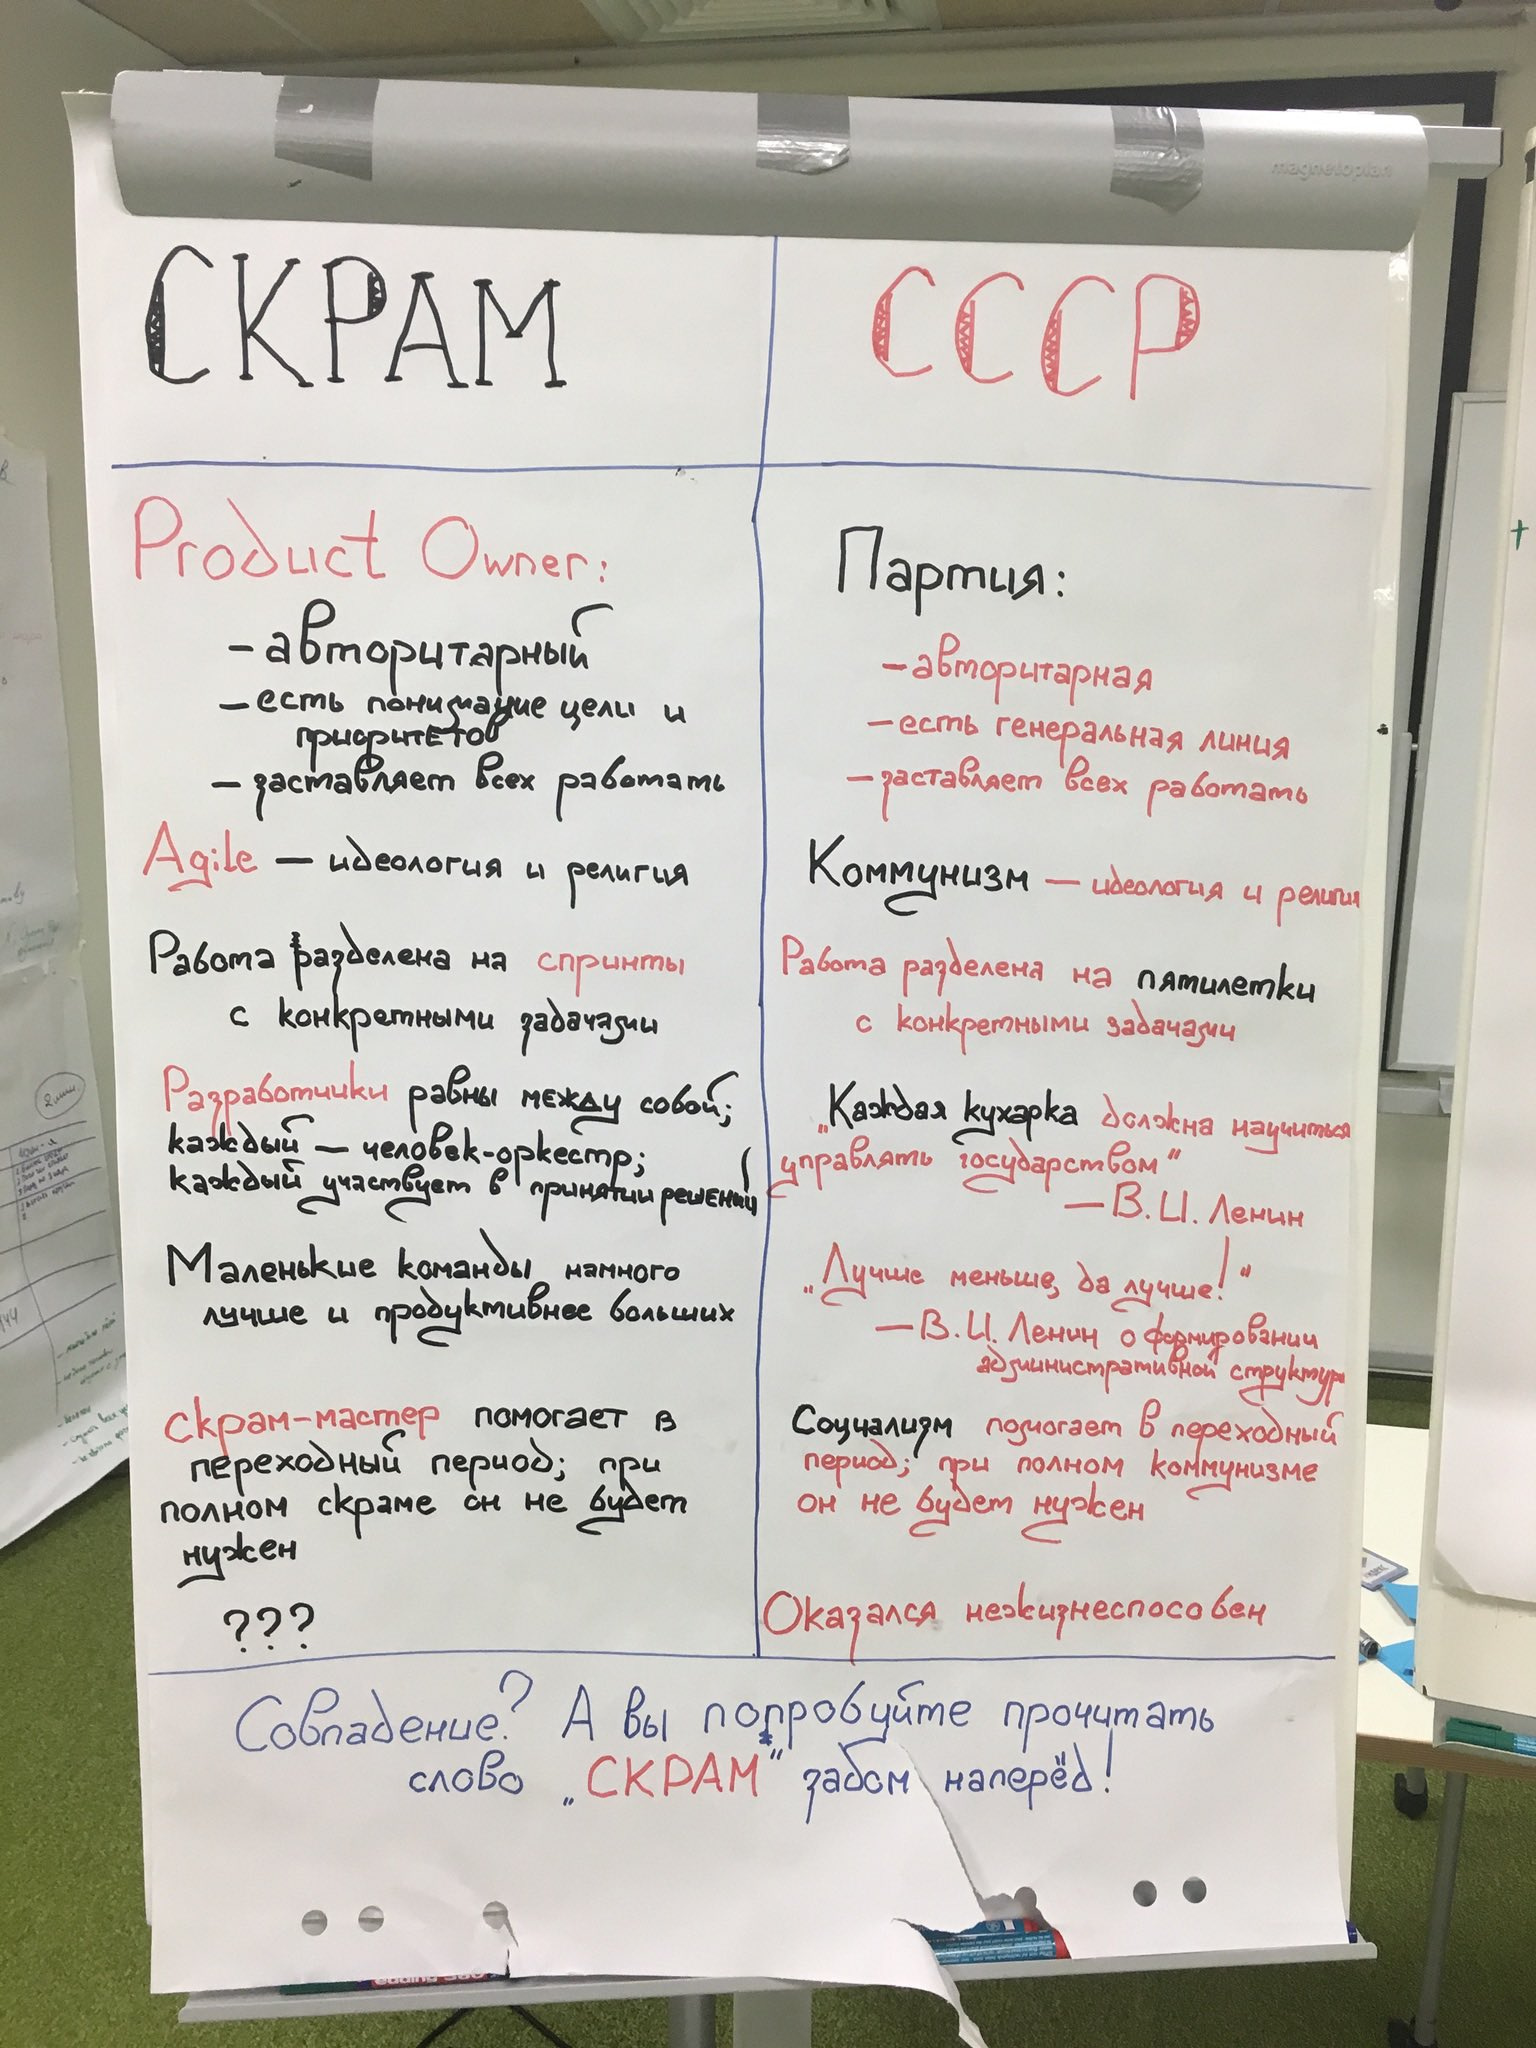 magnetoplan
СКРАМ
Product Owner:
- авторитарный
- есть понимание цели и
приоритетов
- заставляет всех работать
Agile — идеология и религия
Работа разделена на спринты
с конкретными задачами
Разработчики равны между собой;
каждый — человек-оркестр;
каждый участвует в принятии решений
Маленькие команды намного
лучше и продуктивнее больших
скрам-мастер помогает в
переходный период; при
полном скраме он не будет
нужен
???
СССР
Партия:
- авторитарная
- есть генеральная линия
- заставляет всех работать
Коммунизм — идеология и религия
Работа разделена на пятилетки
с конкретными задачами
„Каждая кухарка должна научиться
управлять государством“
— В. И. Ленин
„Лучше меньше, да лучше!“
— В. И. Ленин о формировании
административной структуры
Социализм помогает в переходный
период; при полном коммунизме
он не будет нужен
Оказался нежизнеспособен
Совпадение? А вы попробуйте прочитать
слово „СКРАМ“ задом наперёд!